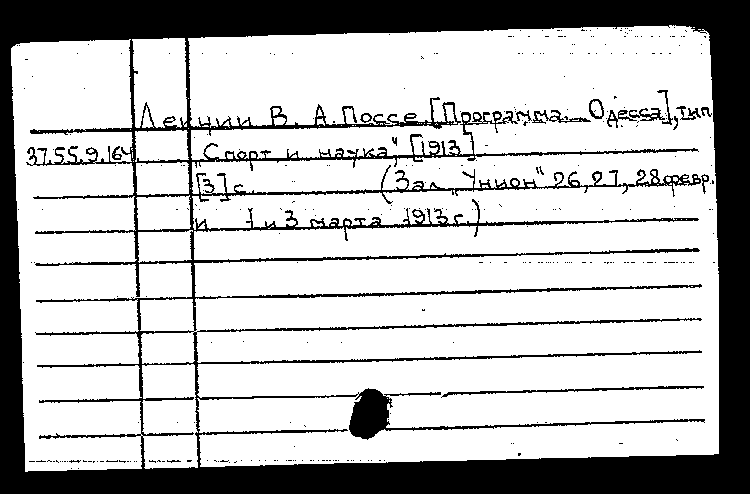 Лекции В. А. Поссе. [Программа. Одесса], тип.
37.55.9.164 „Спорт и наука“, [1913]
[3] с. (Зал „Унион“ 26, 27, 28 февр.
и 1 и 3 марта 1913 г.)